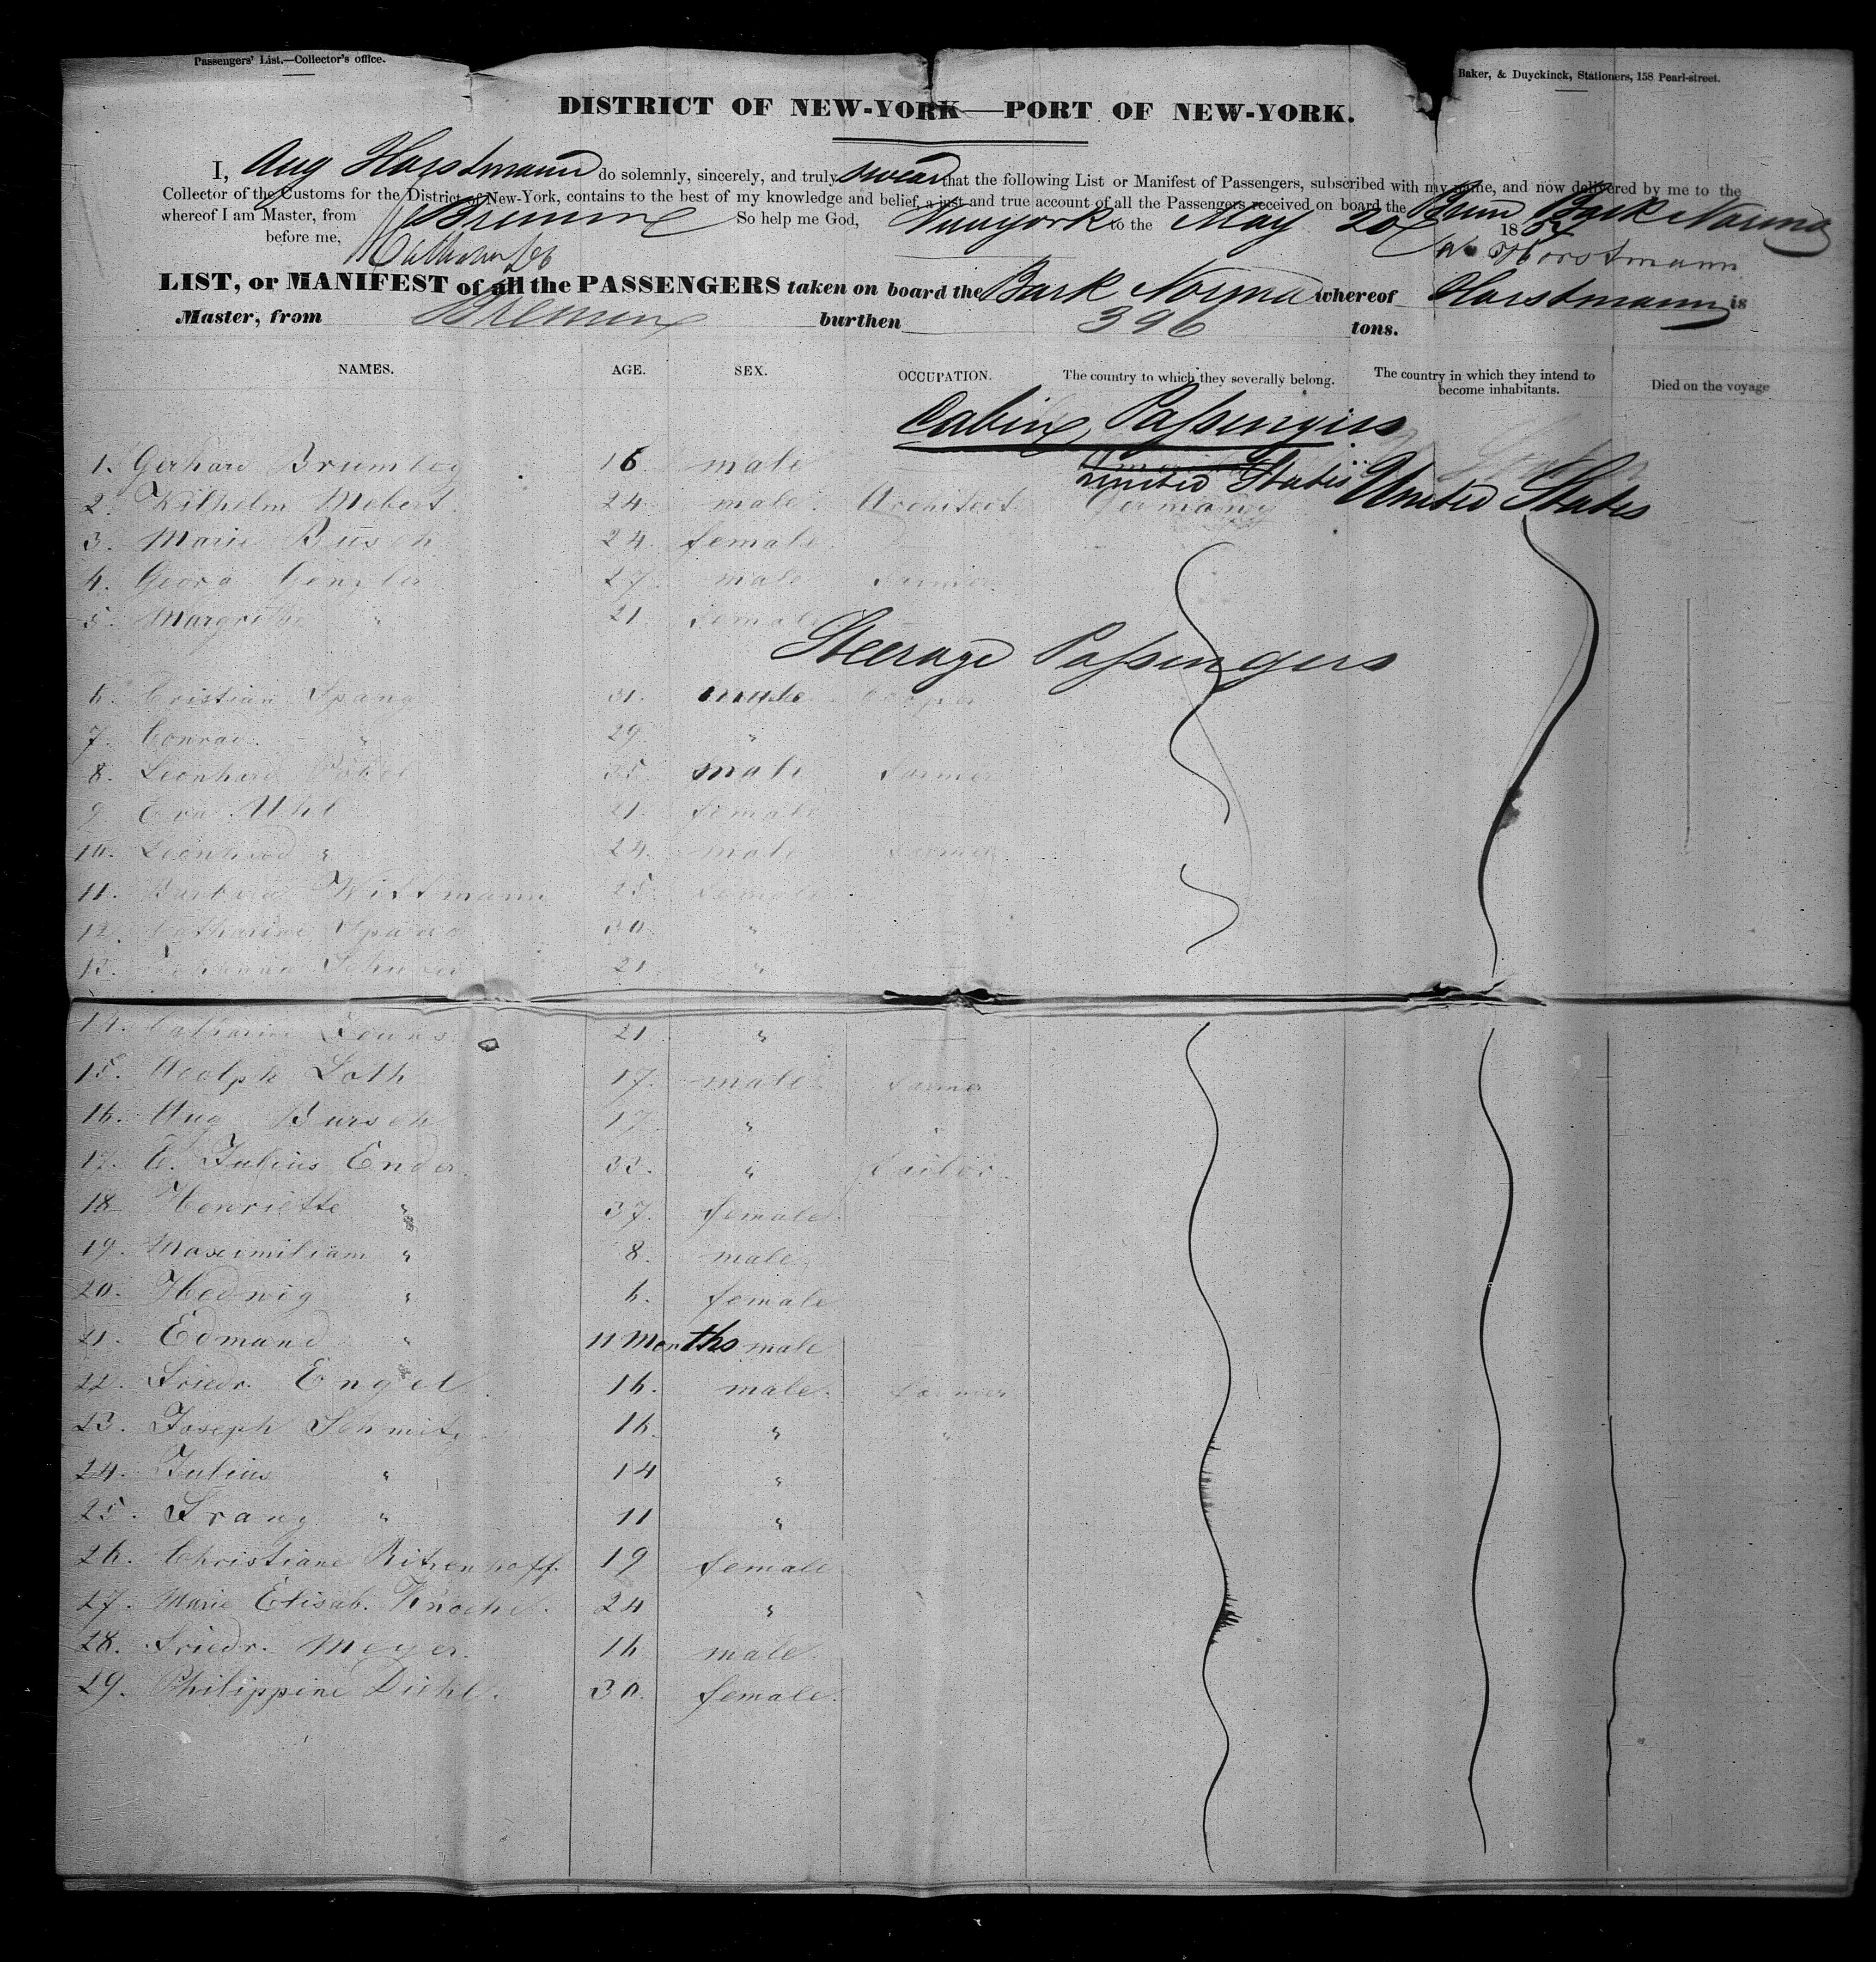 Passengers' List.—Collector's office.
Baker, & Duyckinck, Stationers, 158 Pearl-street.
DISTRICT OF NEW-YORK—PORT OF NEW-YORK.
I, Aug Horstmann do solemnly, sincerely, and truly swear that the following List or Manifest of Passengers, subscribed with my name, and now delivered by me to the
Collector of the Customs for the District of New-York, contains to the best of my knowledge and belief, a just and true account of all the Passengers received on board the Brem Bark Norma
whereof I am Master, from Bremen So help me God, Newyork to the May 20 185
before me, Horstmann
LIST, or MANIFEST of all the PASSENGERS taken on board the Bark Norma whereof Horstmann is
Master, from Bremen burthen 396 tons.
NAMES. AGE. SEX. OCCUPATION. The country to which they severally belong. The country in which they intend to become inhabitants. Died on the voyage
Cabin Passengers
1. Gerhard Brumley 16 male United States United States
2. Wilhelm Mebert. 24. male. Architect. Germany
3. Marie Büsch 24. female.
4. Georg Genzler 27. male farmer
5. Margrethe " 21. female
Steerage Passengers
6. Cristian Spang 31.
7. Conrad " 29 "
8. Leonhard 35. male farmer
9. Eva Uhl 21. female
10. Leonhard " 24. male farmer
11. Barbara Wittmann 25. female
12. Catharine Spang 30. "
13. 21 "
14. Catharine 21 "
15. Adolph Loth 17. male farmer
16. Aug Bursch 17. " "
17. C. Julius Ender. 33. " tailor.
18 Henriette " 37. female.
19. Maximiliam " 8. male.
20. Hedwig " 6. female
21. Edmund " 11 Months male
22. Friedr. Engel. 16. male. farmer
23. Joseph Schmitz 16. " "
24. Julius " 14 "
25. Franz " 11 "
26. Christiane Ritzenhoff. 19 female
27. Marie Elisab. Knochel. 24 "
28. Friedr. Meyer. 16 male.
29. Philippine Diehl. 30. female.